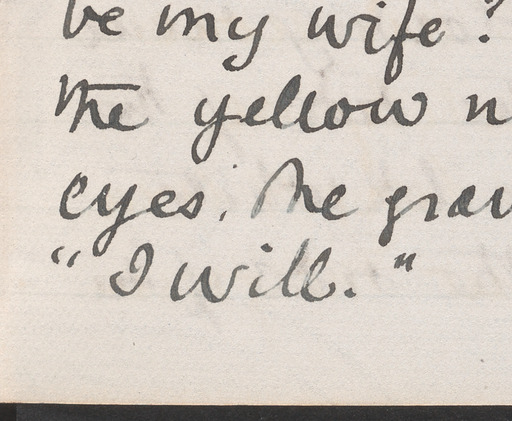 be my wife?
the yellow
eyes, the
"I will."